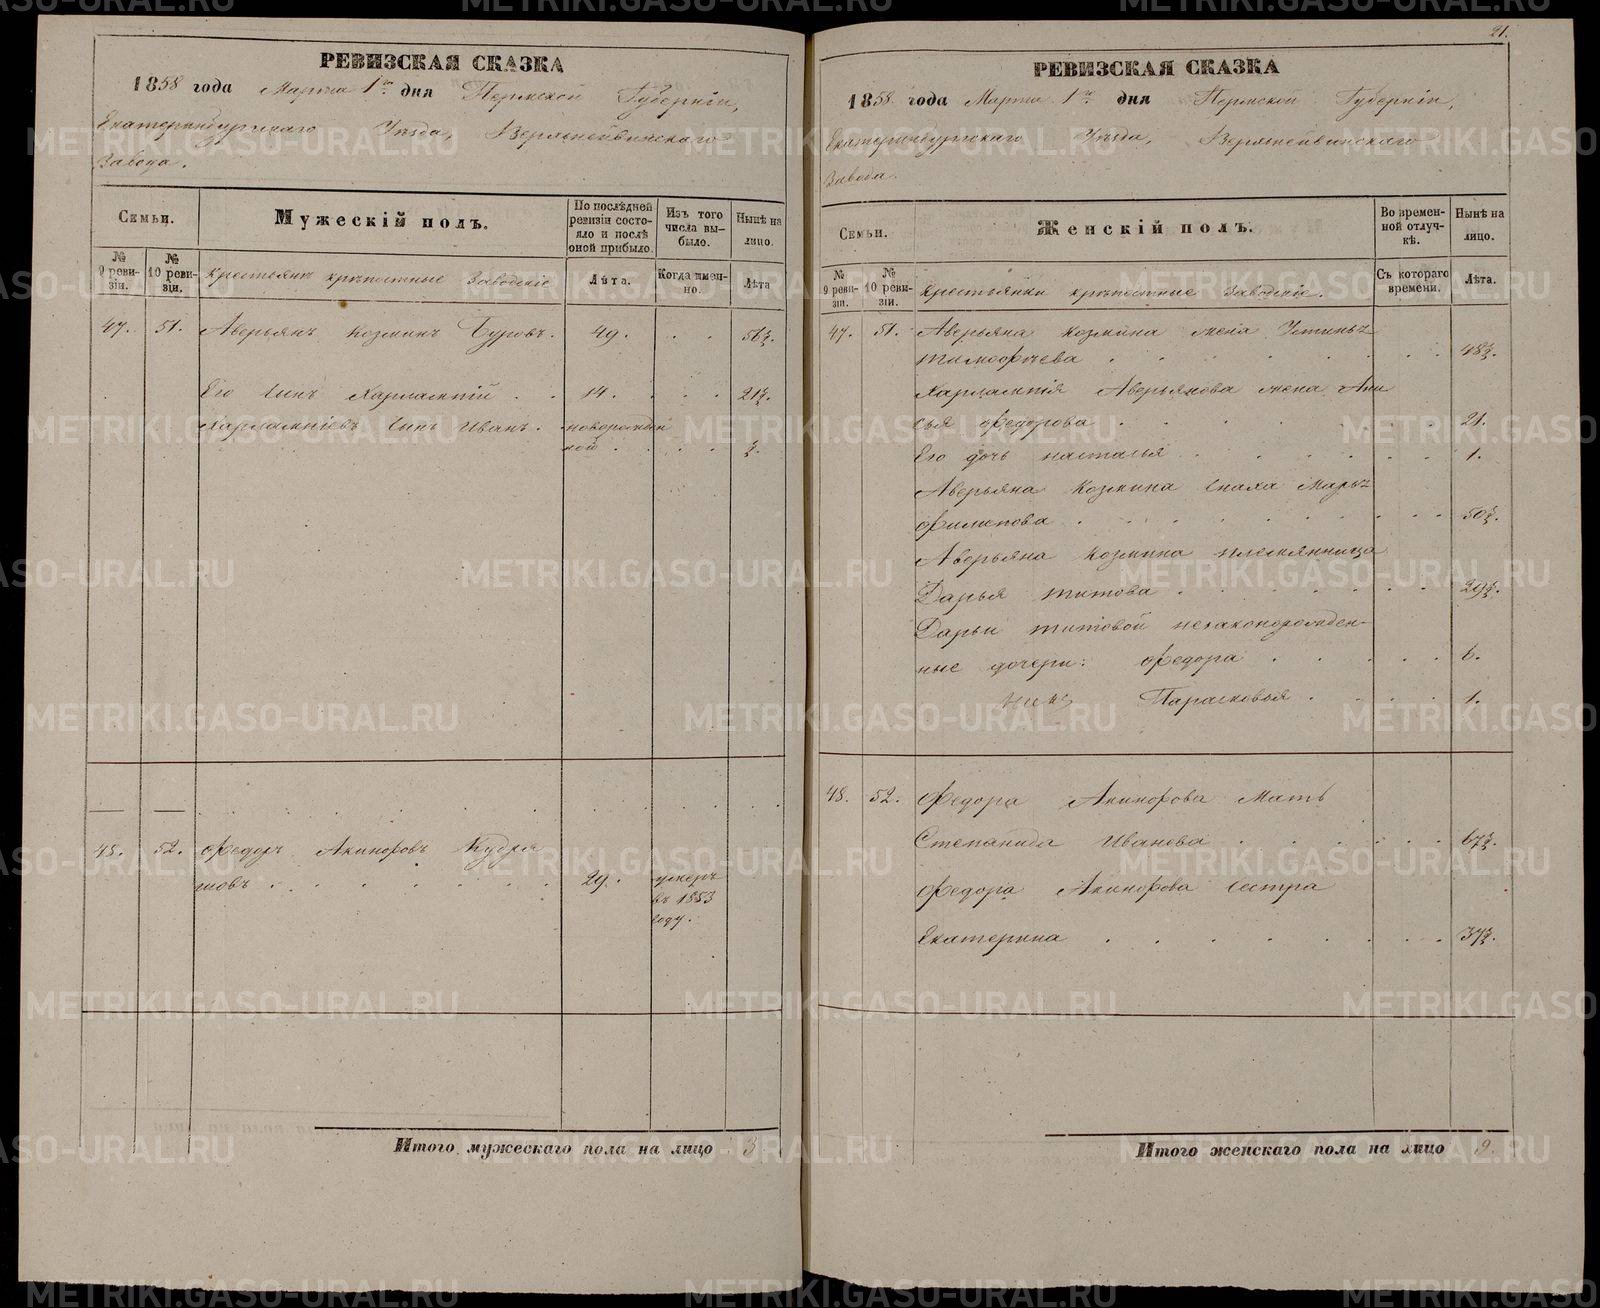 РЕВИЗСКАЯ СКАЗКА
1858 года Марта 1го дня Пермской Губерніи,
Екатеринбургскаго Уѣзда, Верхнейвинскаго
Завода.
Семьи.
Мужескій полъ.
По послѣдней ревизіи состояло и послѣ оной прибыло.
Изъ того числа выбыло.
Нынѣ на лицо.
№ 9 ревизіи.
№ 10 ревизіи.
Крестьянъ крѣпостные Заводскіе
Лѣта.
Когда именно.
Лѣта
47. 51. Аверьянъ Козминъ Буровъ. 49. 58½.
Его Сынъ Харлампій 14. 21½.
Харлампіевъ Сынъ Иванъ. новорожден
ной ½.
48. 52. Федоръ Акинфовъ Кудря
шовъ 29. умеръ
въ 1853
году.
Итого мужескаго пола на лицо 3
21.
РЕВИЗСКАЯ СКАЗКА
1858 года Марта 1го дня Пермской Губерніи,
Екатеринбургскаго Уѣзда, Верхнейвинскаго
Завода.
Семьи.
Женскій полъ.
Во временной отлучкѣ.
Нынѣ на лицо.
№ 9 ревизіи.
№ 10 ревизіи.
Крестьянки крѣпостные Заводскіе.
Съ котораго времени.
Лѣта.
47. 51. Аверьяна Козмина жена Устинья
тимофѣева 48½.
Харлампія Аверьянова жена Ани
сья федорова 21.
Его дочь настасья 1.
Аверьяна Козмина Сноха Марья
филипова 50½.
Аверьяна Козмина племянница
Дарья титова 29½.
Дарьи титовой незаконорожден-
ные дочери: федора 6.
Парасковья 1.
48. 52. Федора Акинфова Мать
Степанида Иванова 67½.
Федора Акинфова Сестра
Екатерина 37½.
Итого женскаго пола на лицо 9.
METRIKI.GASO-URAL.RU